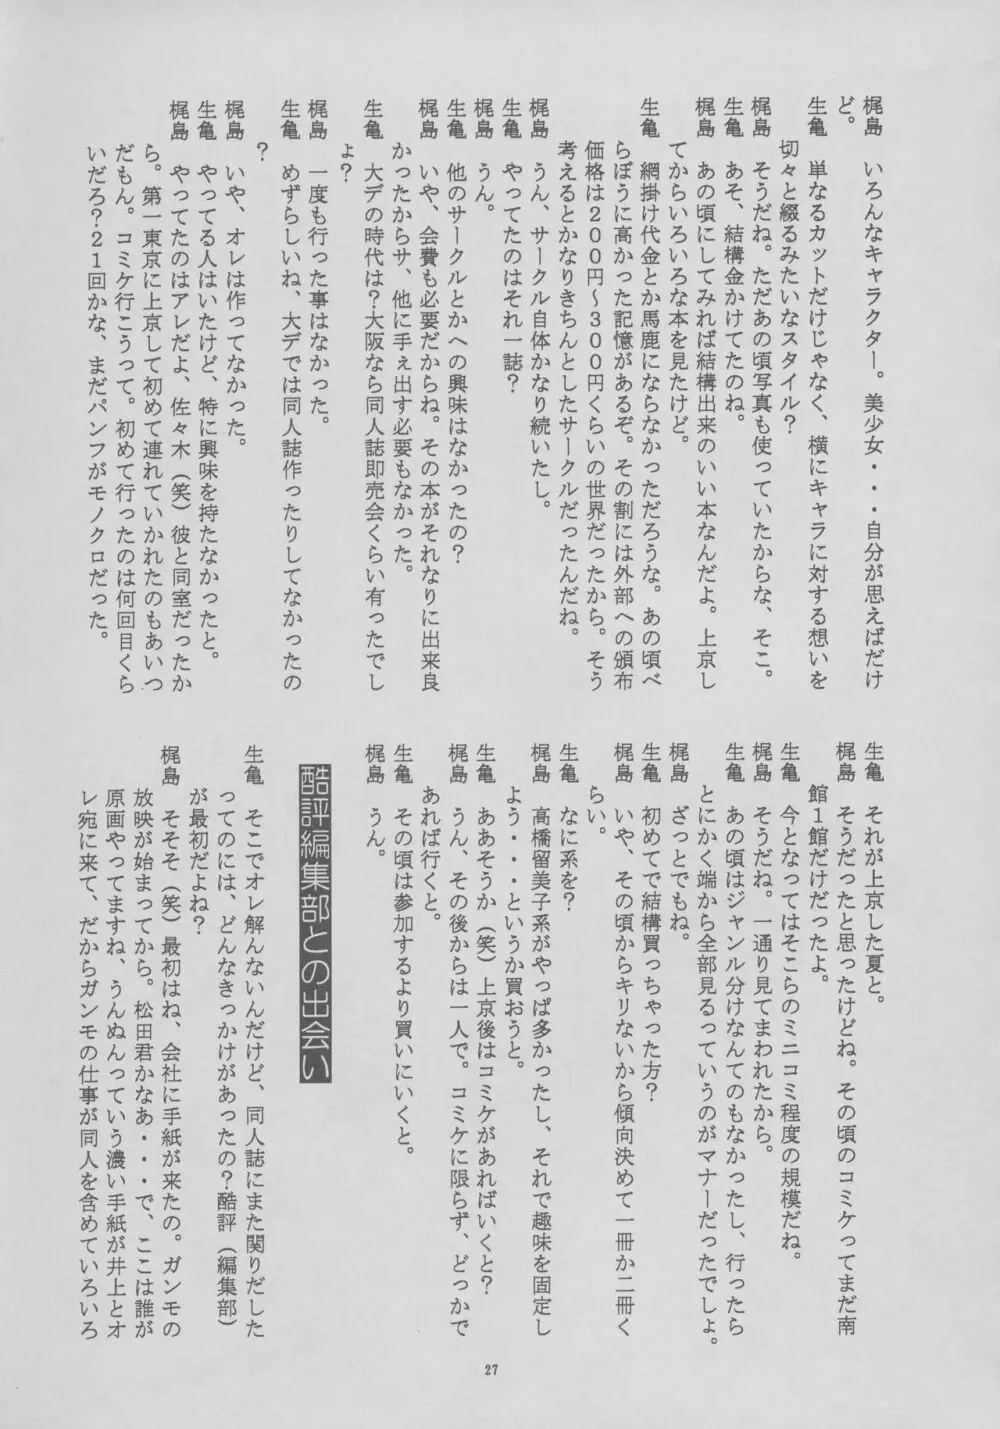 梶島　いろんなキャラクター。美少女・・・自分が思えばだけ
ど。
生亀　単なるカットだけじゃなく、横にキャラに対する想いを
切々と綴るみたいなスタイル？
梶島　そうだね。ただあの頃写真も使っていたからな、そこ。
生亀　あそ、結構金かけてたのね。
梶島　あの頃にしてみれば結構出来のいい本なんだよ。上京し
てからいろいろな本を見たけど。
生亀　網掛け代金とか馬鹿にならなかっただろうな。あの頃べ
らぼうに高かった記憶があるぞ。その割には外部への頒布
価格は２００円〜３００円くらいの世界だったから。そう
考えるとかなりきちんとしたサークルだったんだね。
梶島　うん、サークル自体かなり続いたし。
生亀　やってたのはそれ一誌？
梶島　うん。
生亀　他のサークルとかへの興味はなかったの？
梶島　いや、会費も必要だからね。その本がそれなりに出来良
かったからサ、他に手え出す必要もなかった。
生亀　大デの時代は？大阪なら同人誌即売会くらい有ったでし
ょ？
梶島　一度も行った事はなかった。
生亀　めずらしいね、大デでは同人誌作ったりしてなかったの
？
梶島　いや、オレは作ってなかった。
生亀　やってる人はいたけど、特に興味を持たなかったと。
梶島　やってたのはアレだよ、佐々木（笑）彼と同室だったか
ら。第一東京に上京して初めて連れていかれたのもあいつ
だもん。コミケ行こうって。初めて行ったのは何回目くら
いだろ？２１回かな、まだパンフがモノクロだった。
生亀　それが上京した夏と。
梶島　そうだったと思ったけどね。その頃のコミケってまだ南
館１館だけだったよ。
生亀　今となってはそこらのミニコミ程度の規模だね。
梶島　そうだね。一通り見てまわれたから。
生亀　あの頃はジャンル分けなんてのもなかったし、行ったら
とにかく端から全部見るっていうのがマナーだったでしょ。
梶島　ざっとでもね。
生亀　初めてで結構買っちゃった方？
梶島　いや、その頃からキリないから傾向決めて一冊か二冊く
らい。
生亀　なに系を？
梶島　高橋留美子系がやっぱ多かったし、それで趣味を固定し
よう・・・というか買おうと。
生亀　ああそうか（笑）上京後はコミケがあればいくと？
梶島　うん、その後からは一人で。コミケに限らず、どっかで
あれば行くと。
生亀　その頃は参加するより買いにいくと。
梶島　うん。
酷評編集部との出会い
生亀　そこでオレ解んないんだけど、同人誌にまた関りだした
ってのには、どんなきっかけがあったの？酷評（編集部）
が最初だよね？
梶島　そそそ（笑）最初はね、会社に手紙が来たの。ガンモの
放映が始まってから。松田君かなあ・・・で、ここは誰が
原画やってますね、うんぬんっていう濃い手紙が井上とオ
レ宛に来て、だからガンモの仕事が同人を含めていろいろ
27